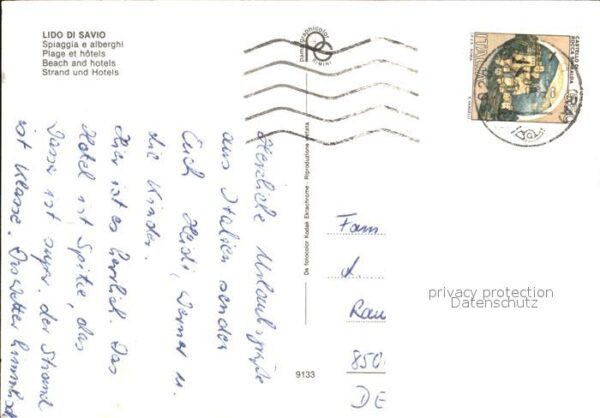 LIDO DI SAVIO
Spiaggia e alberghi
Plage et hôtels
Beach and hotels
Strand und Hotels
RIMINI
CASTELLO DI
ROCCA
ITALIA
Da fotocolor Kodak Ekrachrome - Riproduzione vietata
9133
Herzliche Urlaubsgrüße
aus Italien senden
Euch Heidi, Werner u.
die Kinder.
Hier ist es herrlich. Das
Hotel ist Spitze, das
Wasser ist super. der Strand
ist Klasse. Das Wetter himmlisch
Fam
L.
Rau
850
DE
privacy protection
Datenschutz